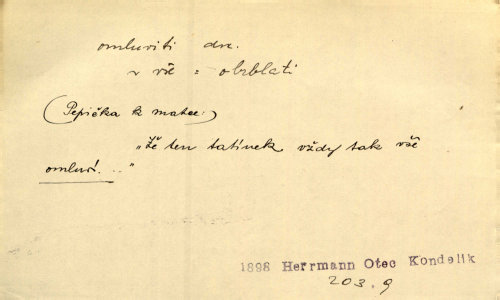 omluviti dn.
v vč = obrblati
(Pepička k matce:)
„Že ten tatínek vždy tak vše
omluví. .."
1898 Herrmann Otec Kondelik
203.9